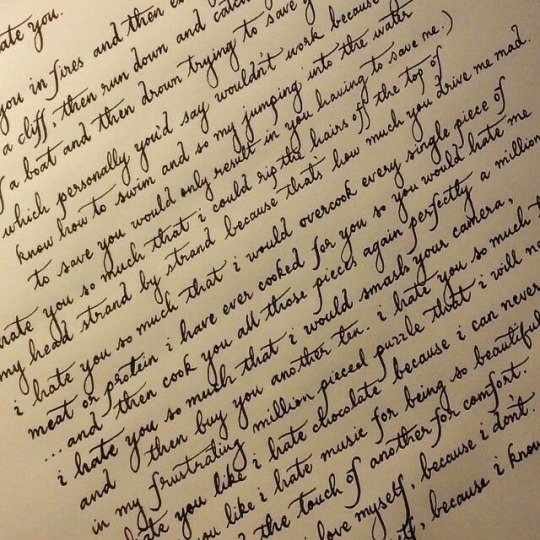 ate you.
you in fires and then ex
a cliff then run down and catch
f a boat and then drown trying to save y
which personally you'd say wouldn't work because
know how to swim and so my jumping into the water
to save you would only result in you having to save me.)
hate you so much that i could rip the hairs off the top of
my head strand by strand because that's how much you drive me mad.
i hate you so much that i would overcook every single piece of
meat or protein i have ever cooked for you so you would hate me
... and then cook you all those pieces again perfectly a million
i hate you so much that i would smash your camera,
and then buy you another ten. i hate you so much t
in my frustrating million pieced puzzle that i will ne
hate you like i hate chocolate because i can never
you like i hate music for being so beautiful
d the touch of another for comfort.
love myself, because i don't.
because i know